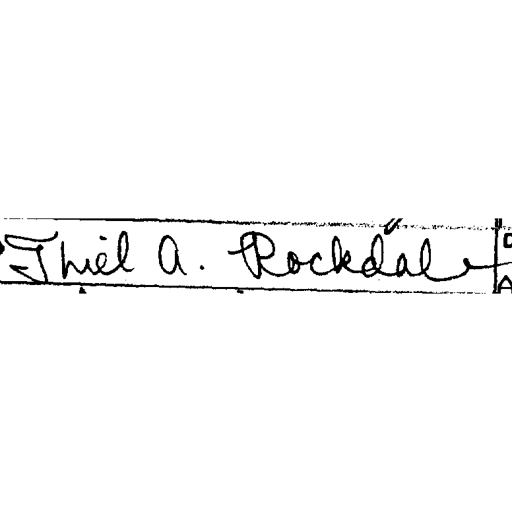 Thiel A. Rockdale